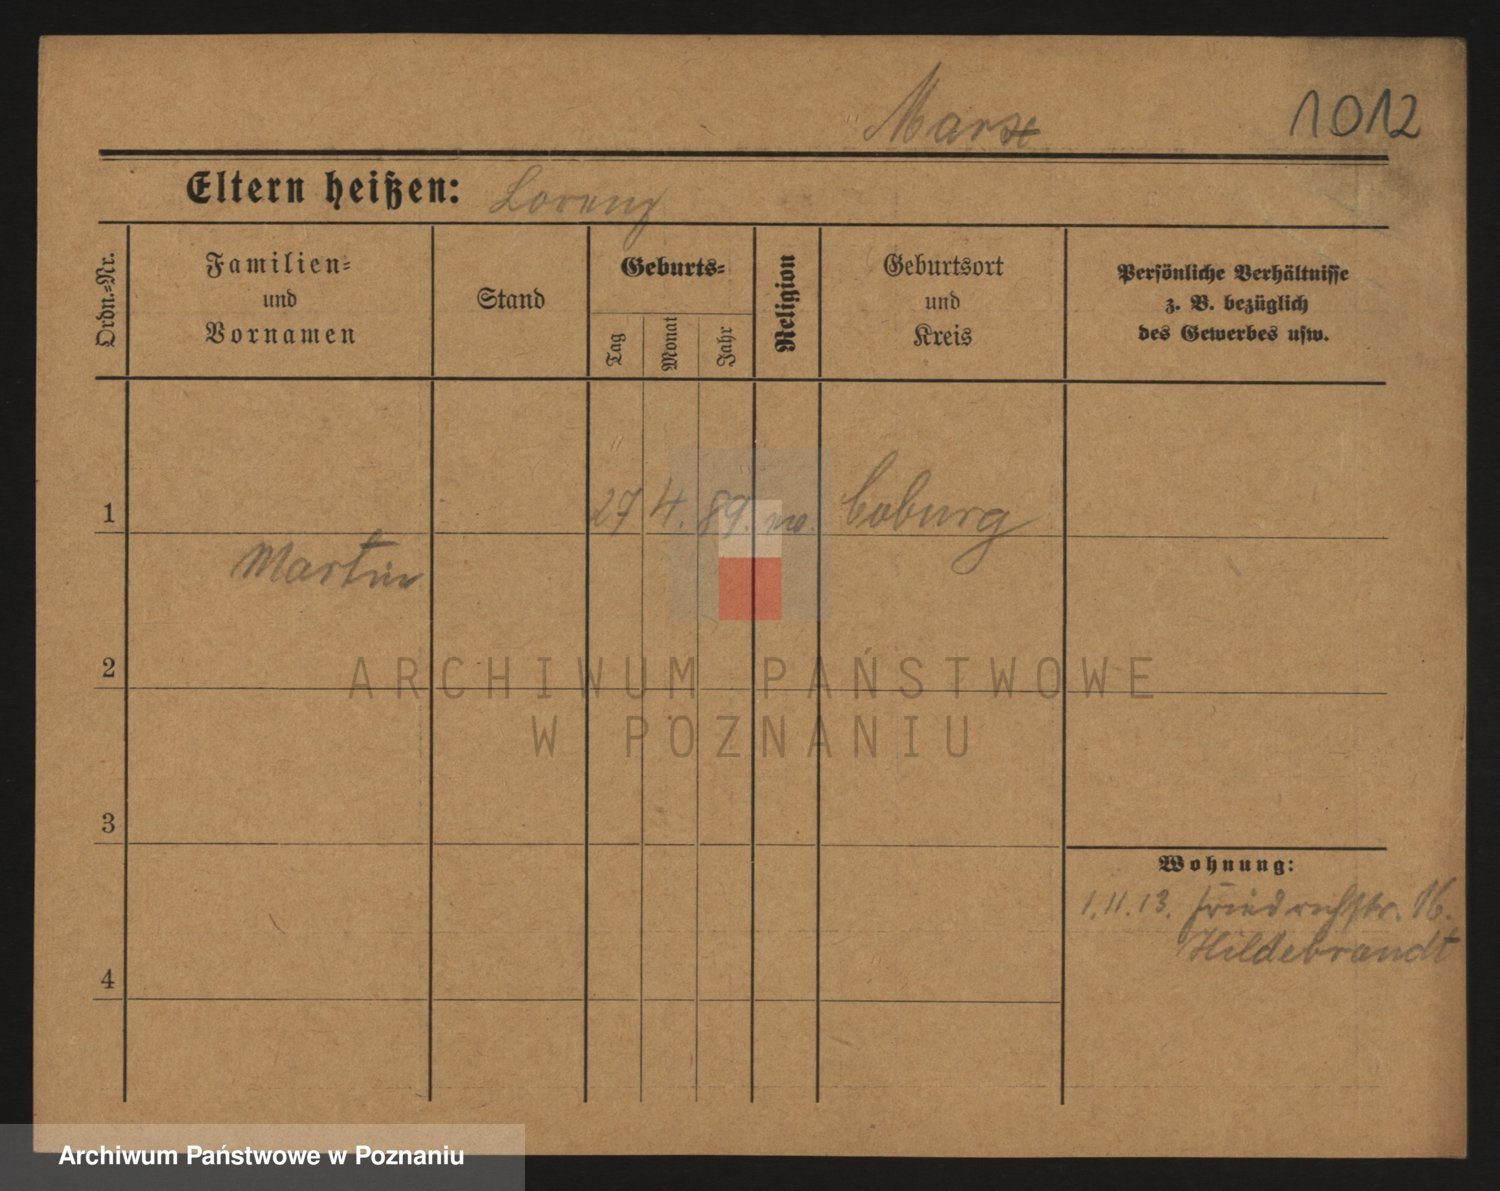 Marx
1012
Eltern heißen: Lorenz
Ordn.-Nr.
Familien-
und
Vornamen
Stand
Geburts-
Tag
Monat
Jahr
Religion
Geburtsort
und
Kreis
Persönliche Verhältnisse
z. B. bezüglich
des Gewerbes usw.
1
27 4. 89. Coburg
Martin
2
ARCHIWUM PAŃSTWOWE
W POZNANIU
3
Wohnung:
1.11.13. Friedrichstr. 16.
Hildebrandt
4
Archiwum Państwowe w Poznaniu